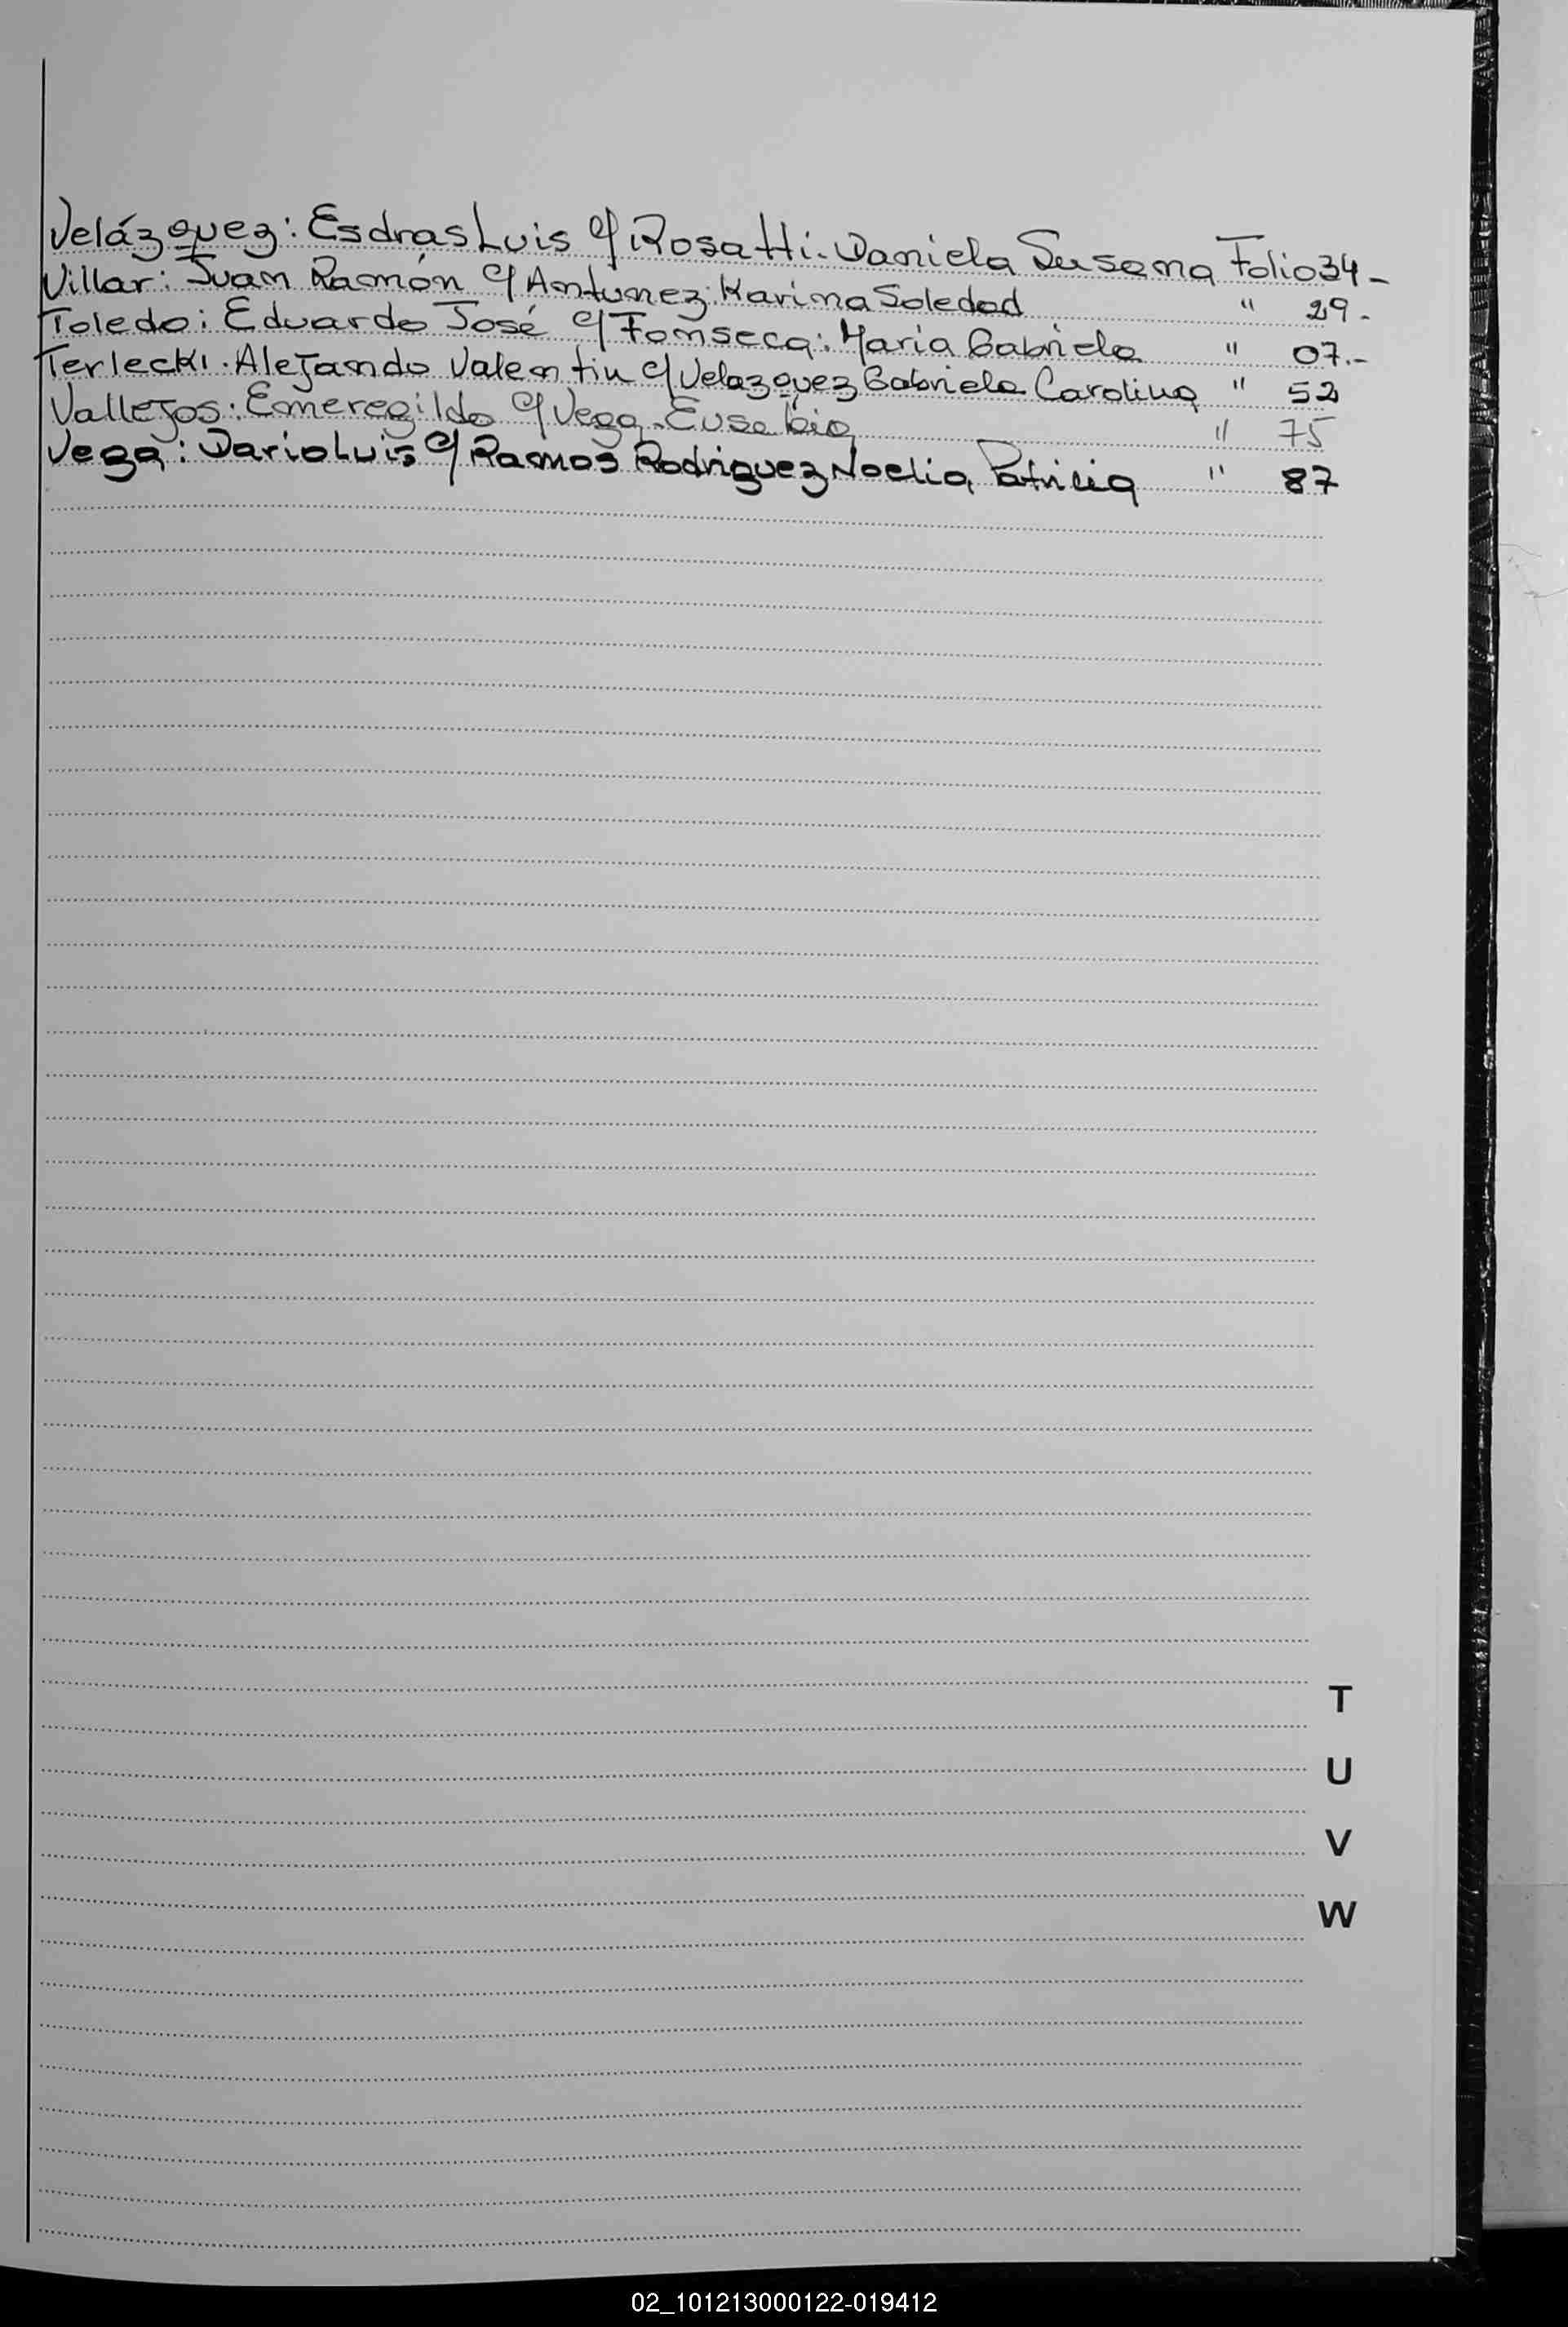 Velázquez: Esdras Luis c/ Rosatti. Daniela Susana Folio 34-
Villar: Juan Ramón c/ Antunez: Karina Soledad " 29-
Toledo: Eduardo José c/ Fonseca: Maria Gabriela " 07.-
Terlecki. Alejando Valentin c/ Velazquez Gabriela Carolina " 52
Vallejos: Emeregildo c/ Vega. Eusebia " 75
Vega: Dario Luis c/ Ramos Rodriguez Noelia Patricia " 87
T
U
V
W
02_101213000122-019412